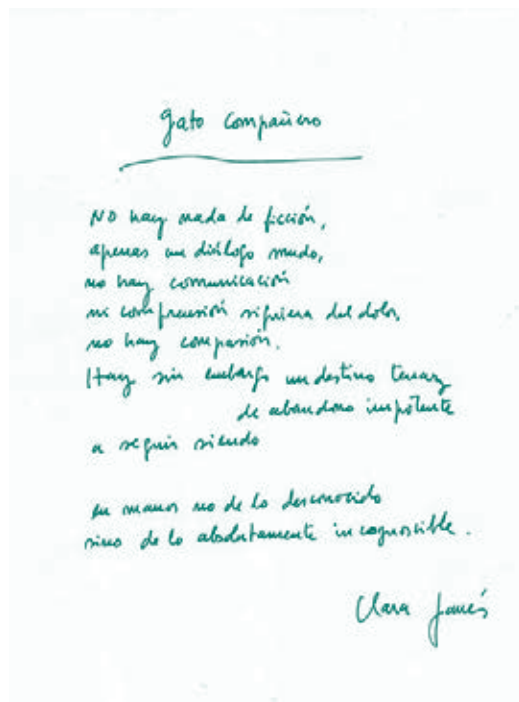 Gato compañero
NO hay nada de ficción,
apenas un diálogo mudo,
no hay comunicación
ni comprensión siquiera del dolor,
no hay compasión.
Hay sin embargo un destino tenaz
de abandono impotente
a seguir siendo
en manos no de lo desconocido
sino de lo absolutamente incognoscible.
Clara Janés